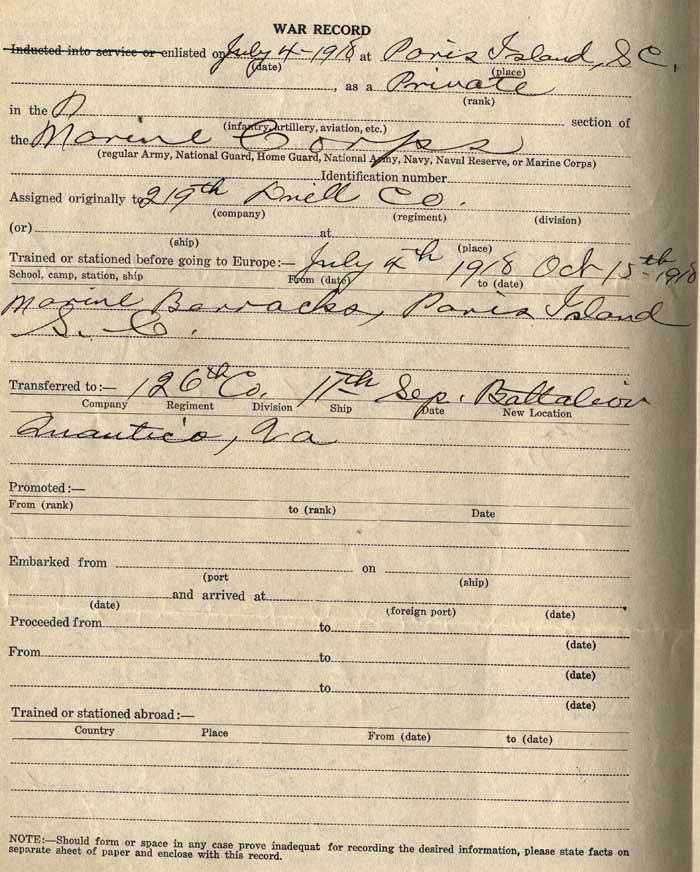 WAR RECORD
Inducted into service or enlisted on July 4-1918 at Paris Island, S.C.
(date) (place)
, as a Private
(rank)
in the section of
(infantry, artillery, aviation, etc.)
the Marine Corps
(regular Army, National Guard, Home Guard, National Army, Navy, Naval Reserve, or Marine Corps)
Identification number
Assigned originally to 219th Drill Co.
(company) (regiment) (division)
(or) at
(ship) (place)
Trained or stationed before going to Europe:— July 4th 1918 Oct 15th-1918
School, camp, station, ship From (date) to (date)
Marine Barracks, Paris Island
S. C.
Transferred to:— 126th Co. 11th Sep. Battalion
Company Regiment Division Ship Date New Location
Quantico, Va
Promoted:—
From (rank) to (rank) Date
Embarked from on
(port (ship)
and arrived at
(date) (foreign port) (date)
Proceeded from to
(date)
From to
(date)
to
(date)
Trained or stationed abroad:—
Country Place From (date) to (date)
NOTE:—Should form or space in any case prove inadequat for recording the desired information, please state facts on
separate sheet of paper and enclose with this record.